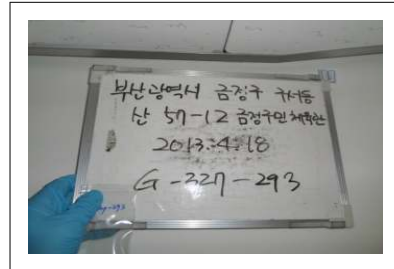 부산광역시 금정구 구서동
산 57-12 금정구민체육관
2013.4.18
G-327-293